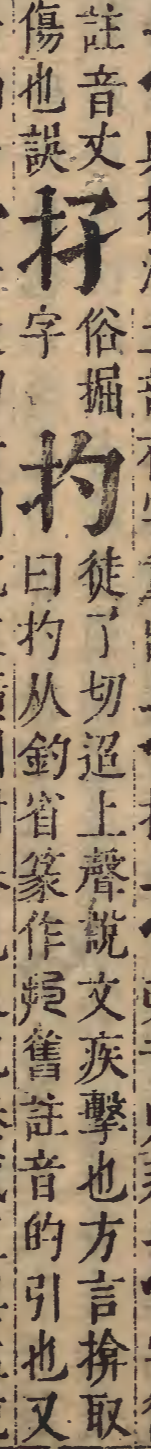 註音丈
傷也誤
俗掘
字
扚
徒了切迢上聲說文疾擊也方言揜取
曰扚从釣省篆作舊註音的引也又